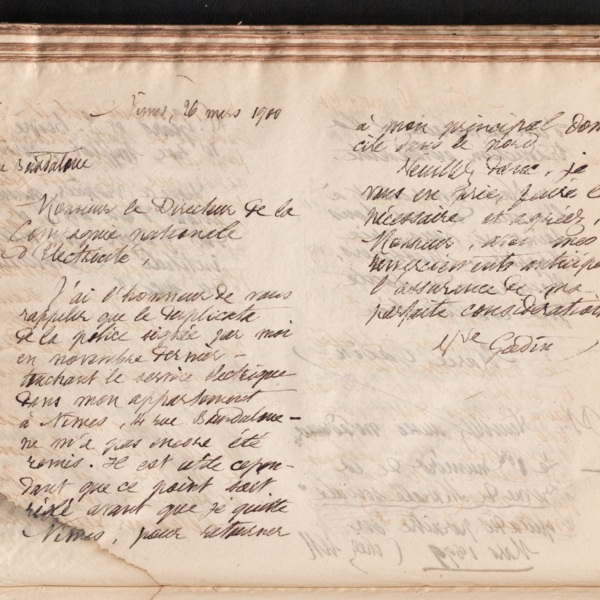 Nîmes, 26 mars 1900
rue Baudaloue
Monsieur le Directeur de la
Compagnie nationale
d'Electricité,
J'ai l'honneur de vous
rappeler que le duplicata
de la police signée par moi
en novembre dernier –
touchant le service électrique
dans mon appartement
à Nîmes, 4 rue Baudaloue –
ne m'a pas encore été
remis. Il est utile cepen-
dant que ce point soit
réglé avant que je quitte
Nîmes, pour retourner
à mon principal domi
cile dans le nord
Veuillez donc, je
vous en prie, faire le
nécessaire et agréez,
Monsieur, avec mes
remerciements anticipés
l'assurance de ma
parfaite considération
Yve Gadin